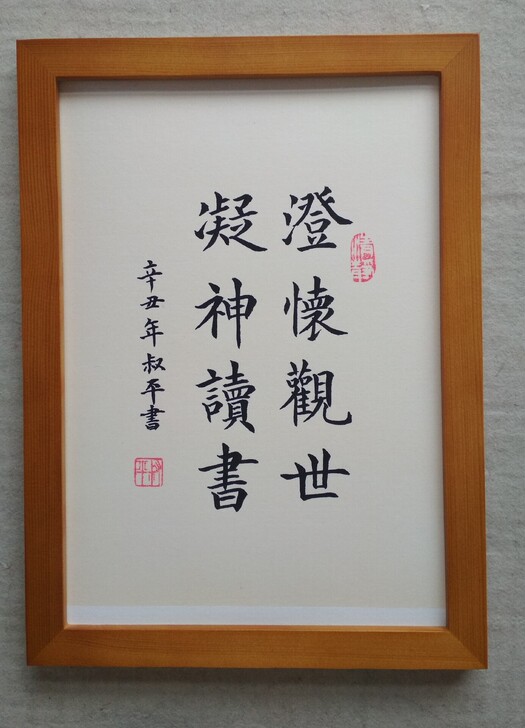 澄懷觀世
凝神讀書
辛丑年叔平書